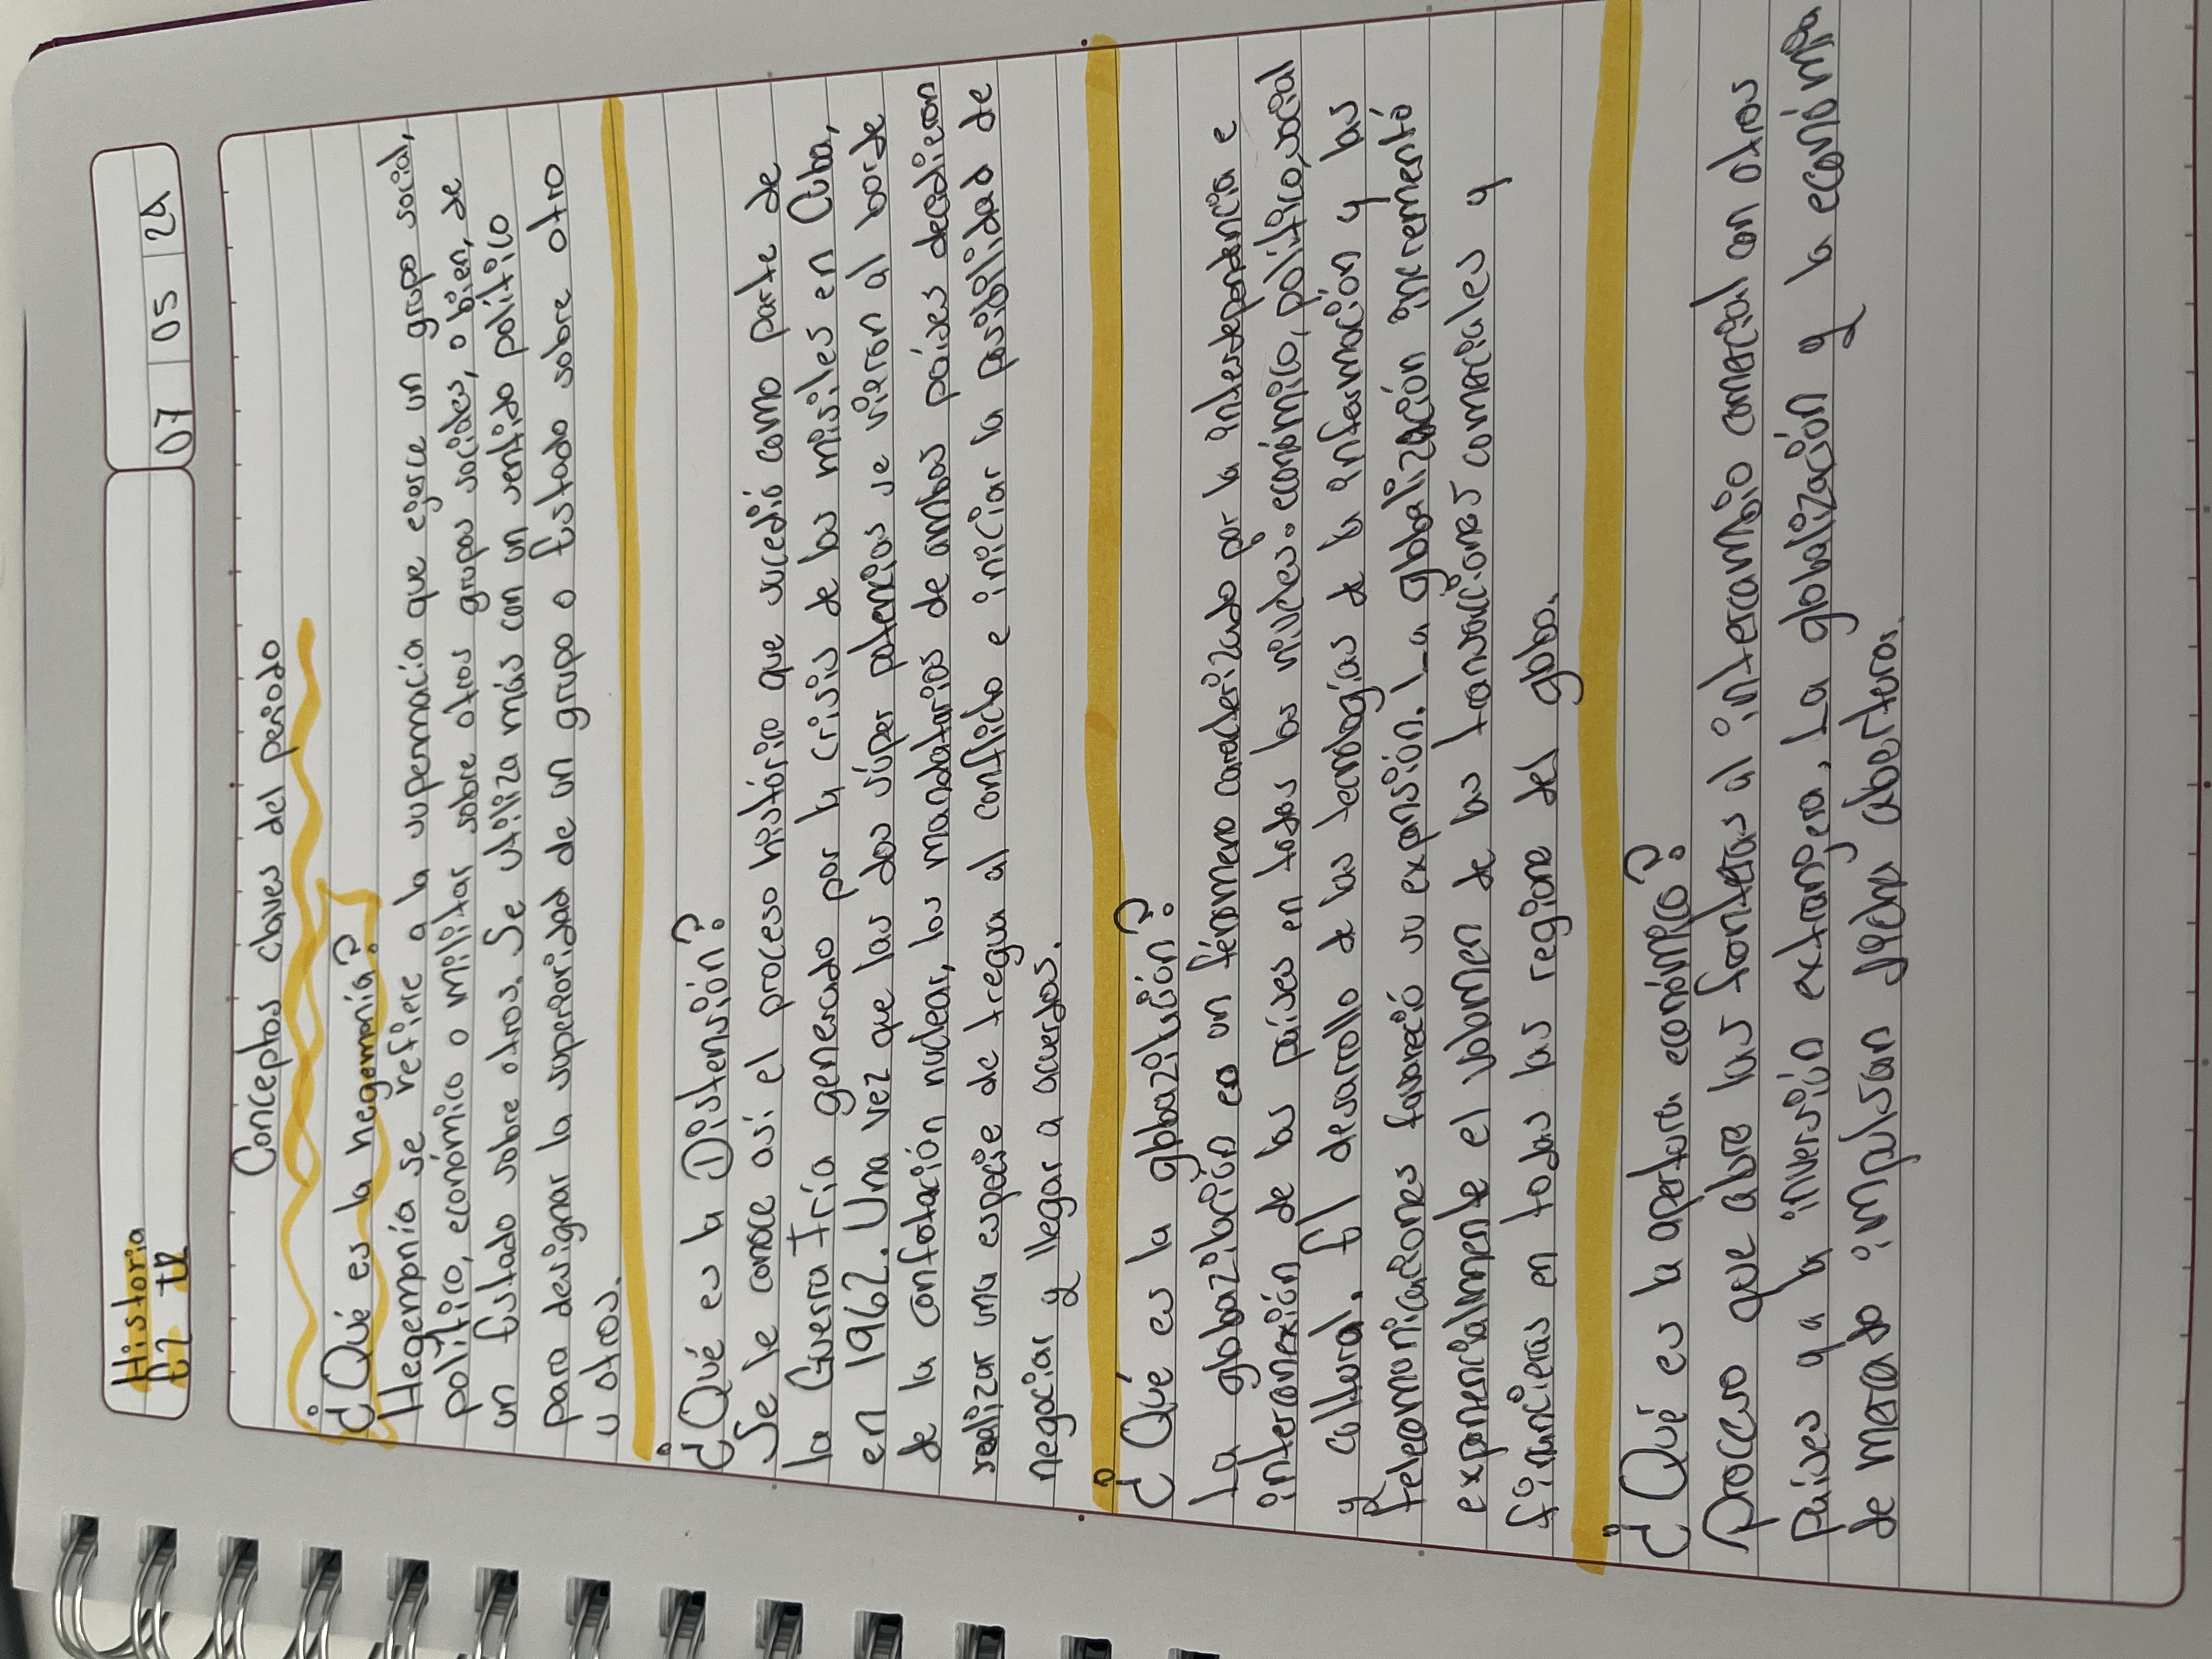 Historia
07 05 24
Conceptos claves del periodo
¿Qué es la hegemonía?
Hegemonía se refiere a la supermacía que ejerce un grupo social,
político, económico o militar sobre otros grupos sociales, o bien, de
un Estado sobre otros. Se utiliza más con un sentido político
para designar la superioridad de un grupo o Estado sobre otro
u otros.
¿Qué es la Distensión?
Se le conoce así el proceso histórico que sucedió como parte de
la Guerra Fría generado por la crisis de los misiles en Cuba,
en 1962. Una vez que las dos súper potencias se vieron al borde
de la confotación nuclear, los mandatarios de ambos países decidieron
realizar una especie de tregua al conflicto e iniciar la posibilidad de
negociar y llegar a acuerdos.
¿Qué es la globazilución?
La globazilación es un fénomeno caracterizado por la interdependencia e
interconexión de los países en todos los niveles: económico, político, social
y cultural. El desarrollo de las tecnologías de la información y las
telecomunicaciones favoreció su expansión. La globalización incrementó
exponencialmente el volumen de las transacciones comerciales y
financieras en todas las regione del globo.
¿Qué es la apertura económica?
Proceso que abre las fronteras al intercambio comercial con otros
Países y a la inversión extranjera. La globalización y la economía
de mercado impulsan dicha aberturas.